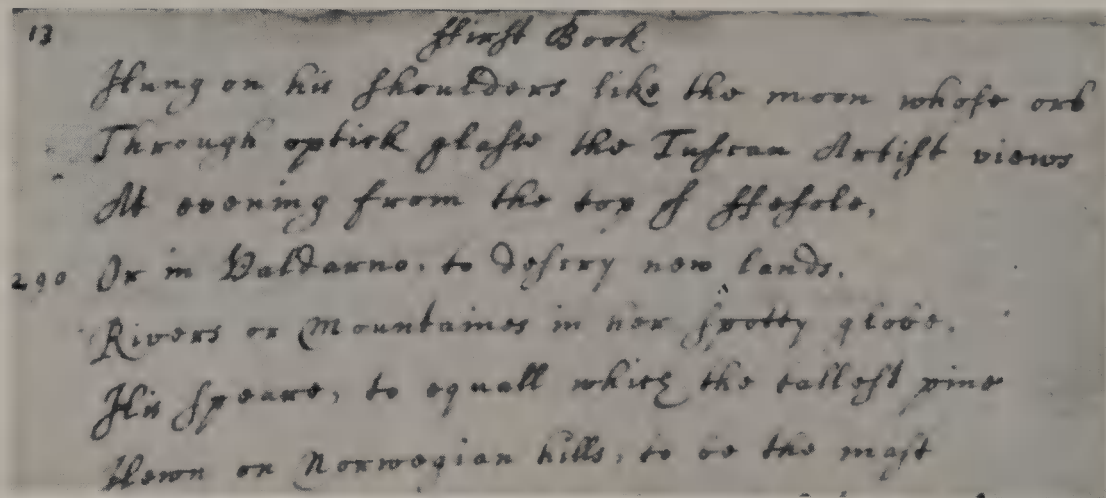 13 ffirst Book
Hung on his shoulders like the moon whose orb
Through optick glasse the Tuscan Artist views
At evening from the top of ffesole,
290 Or in Valdarno, to descry new lands,
Rivers or Mountaines in her spotty globe.
His speare, to equall which the tallest pine
Hewn on Norwegian hills, to be the mast